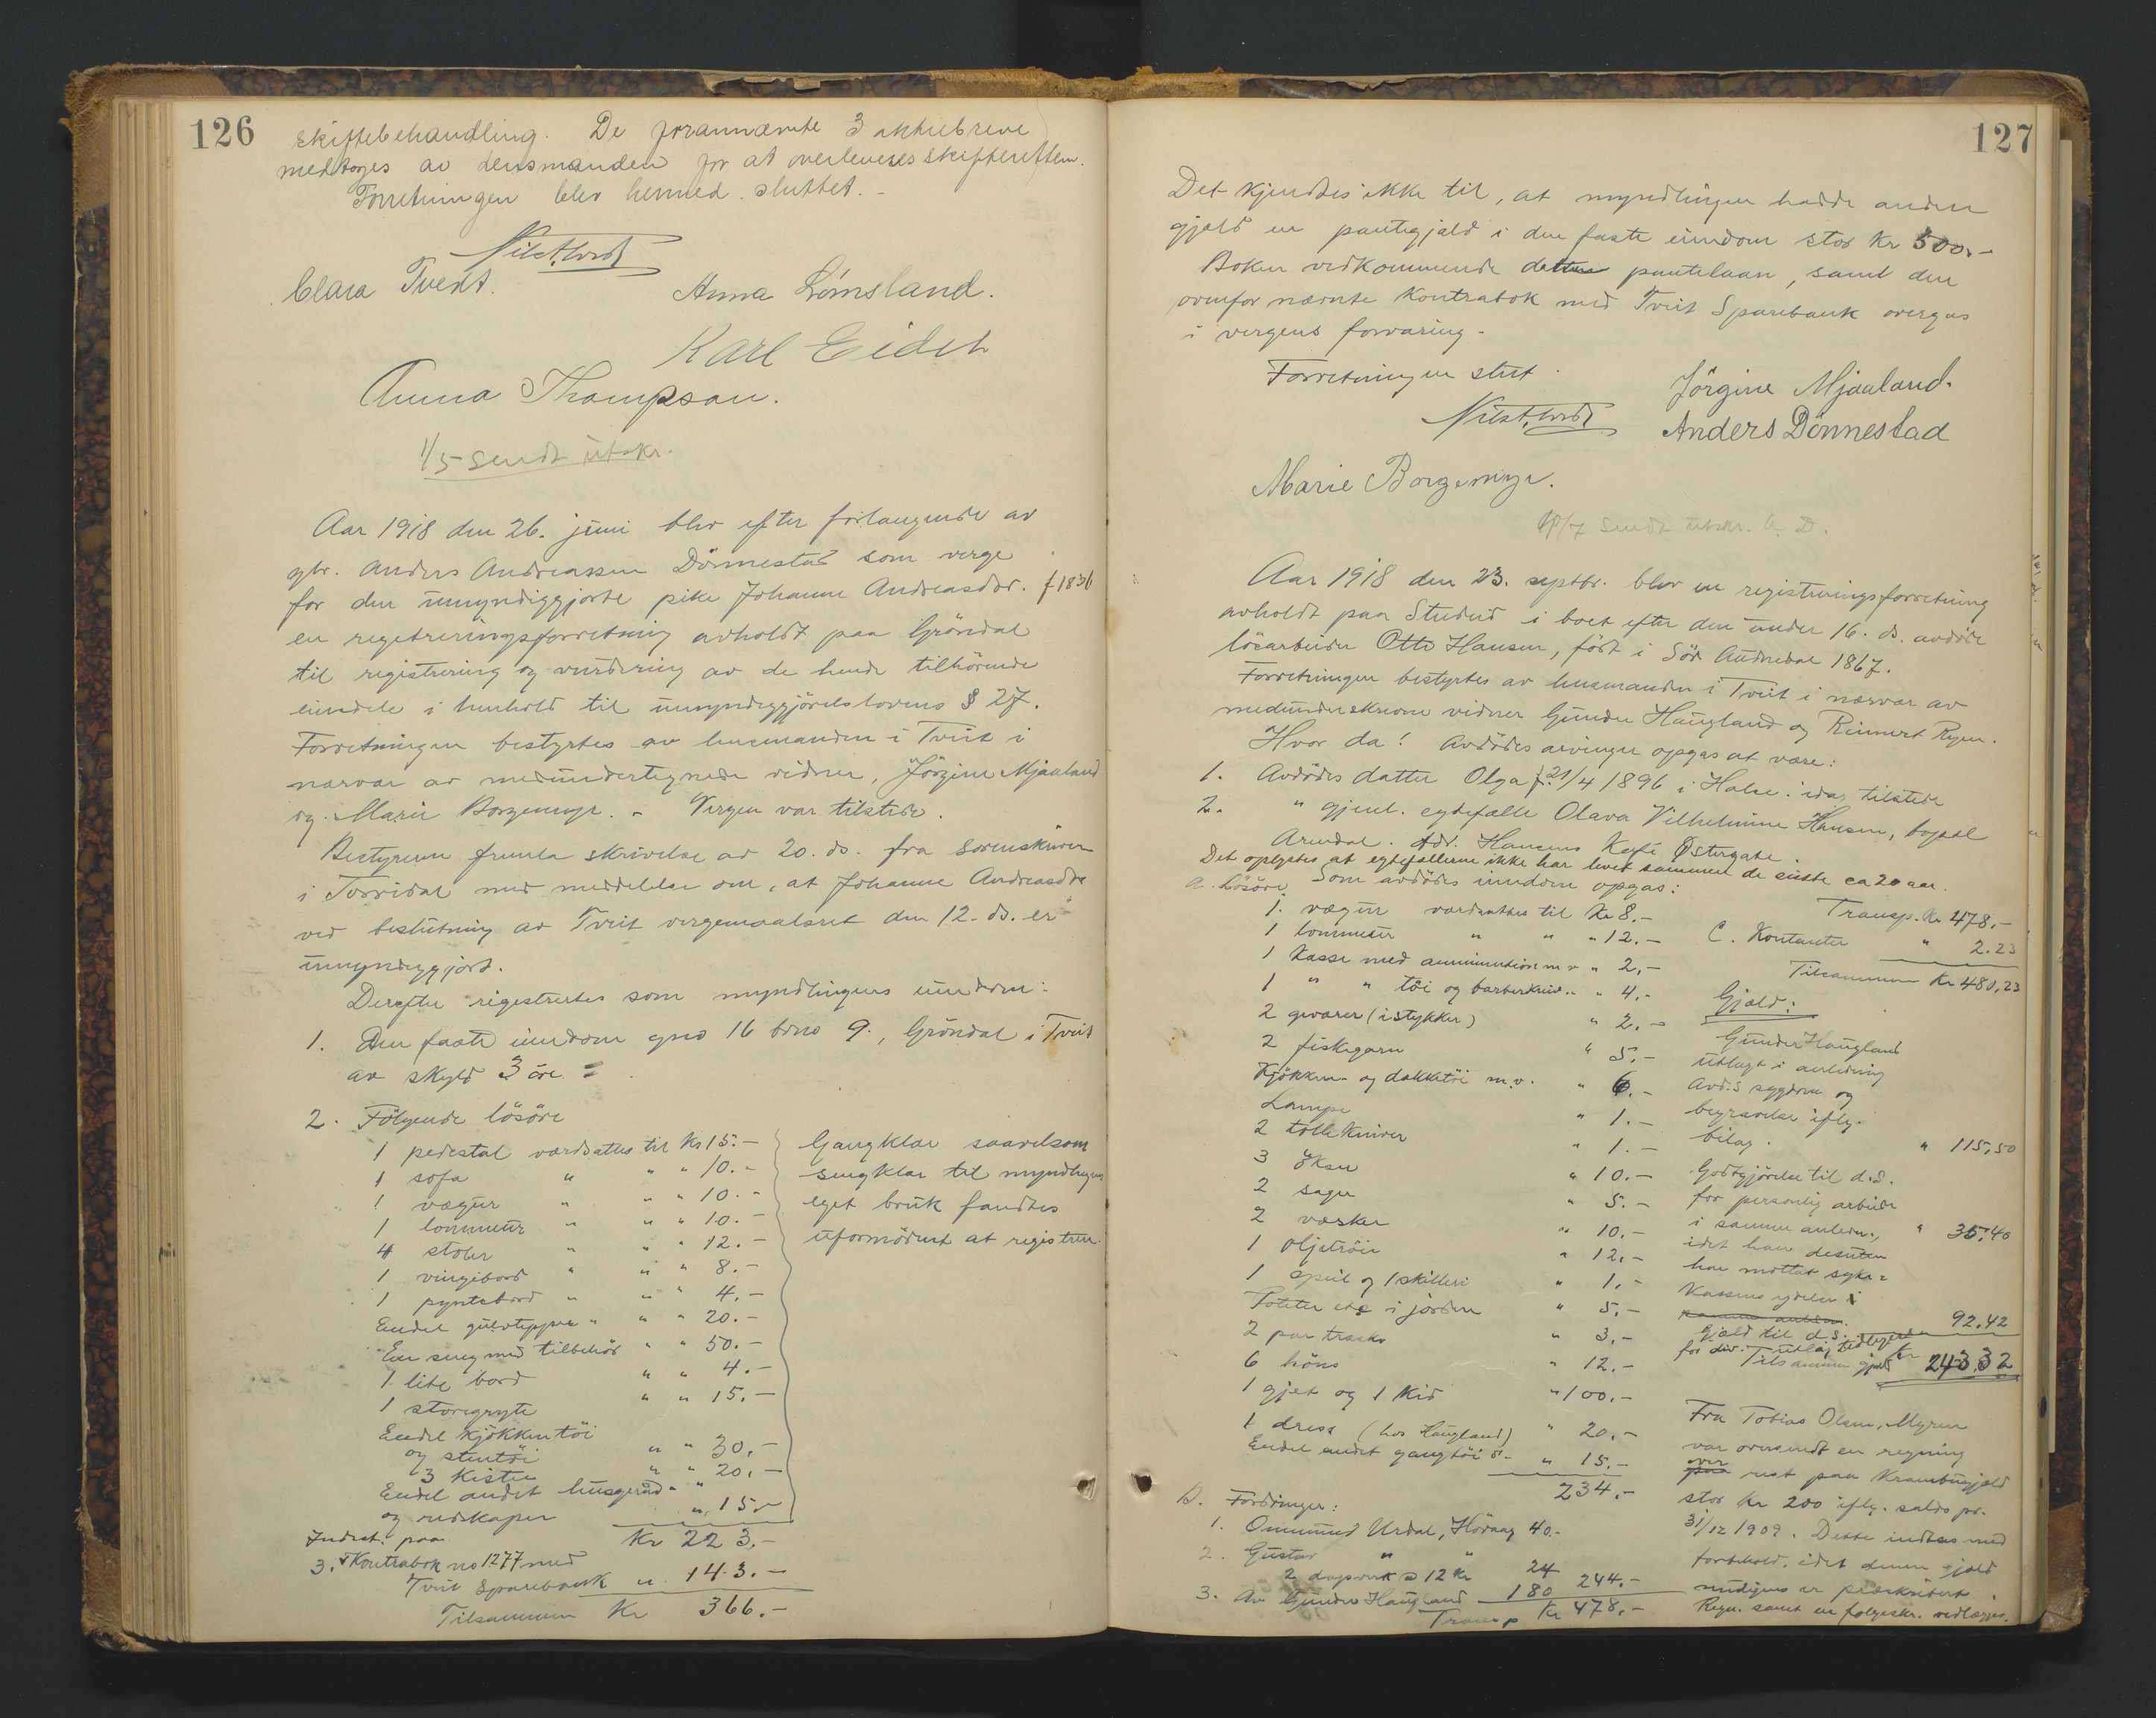 126
skiftebehandling. De forannævnte 3 aktiebreve
medtoges av lensmanden for at overleveres skifteretten.
Forretningen blev hermed sluttet. -
Clara Tveit.
Anna Lömsland.
Karl Eideh
Anna Thompson.
1/5 sendt utskr.
Aar 1918 den 26. juni blev efter forlangende av
gbr. Anders Andreassen Dönnestad som verge
for den umyndiggjorte pike Johanne Andreasdtr. f 1836
en registreringsforretning avholdt paa Gröndal
til registrering og vurdering av de hende tilhörende
eiendele i henhold til umyndiggjörelsloven § 27.
Forretningen bestyrtes av lensmanden i Tveit i
nærvær av medundertegnede vidner, Jörgine Mjaaland
og Marie Borgemyr. - Vergen var tilstede.
Bestyreren fremla skrivelse av 20. ds. fra Sorenskriveren
i Torridal med meddelelse om, at Johanne Andreasdtr
ved beslutning av Tveit vergemaalsret den 12. ds. er
umyndiggjort.
Derefter registrertes som myndlingens eiendom:
1. Den faste eiendom gno 16 bno 9., Gröndal i Tveit
av skyld 3 öre
2. Fölgende lösöre
1 pedestal værdsattes til Kr 15.-
1 sofa " " " 10.-
1 vægur " " " 10.-
1 lommeur " " " 10.-
4 stoler " " " 12.-
1 vingebord " " " 8.-
1 pyntebord " " " 4.-
Endel gulvtepper " " " 20.-
En seng med tilbehör " " 50.-
1 lite bord " " 4.-
1 storegryte " " 15.-
Endel kjökkentöi
og stentöi " " 30.-
3 kister " " 20.-
Endel andet husgeraad " "
og redskaper " 15.-
Kr 223.-
Gangklær saavelsom
sengklær til myndlingens
eget bruk fandtes
ufornödent at registrere.
Indest. paa
3. Kontrabok no 1277 med
Tveit Sparebank " 143.-
Tilsammen Kr 366.-
127
Det kjendtes ikke til, at myndlingen hadde anden
gjeld en pantegjeld i den faste eiendom stor Kr 500.-
Boken vedkommende dette pantelaan, samt den
ovenfor nævnte Kontrabok med Tveit Sparebank overgas
i vergens forvaring.
Forretningen slut.
Jörgine Mjaaland.
Anders Dönnestad
Marie Borgemyr.
/7 sendt utskr. A. D.
Aar 1918 den 23. septbr. blev en registreringsforretning
avholdt paa Studud i boet efter den under 16. ds. avdöde
lösarbeider Otto Hansen, født i Sör Audnedal 1867.
Forretningen bestyrtes av lensmanden i Tveit i nærvær av
medunderskrevne vidner Gunder Haugland og Reinert Ryen.
Hvor da! Avdödes arvinger opgas at være:
1. Avdödes datter Olga f. 21/4 1896 i Halse. idag tilstede
2. " gjenl. egtefælle Olava Vilhelmine Hansen, bopæl
Arendal. Adr. Hansens Kafé Østergate.
Det oplystes at egtefællerne ikke har levet sammen de siste ca 20 aar.
Som avdödes eiendom opgas:
A. Lösöre
1. vægur værdsattes til Kr 8.-
1 lommeur " " " 12.-
1 Kasse med ammunition m v " 2,-
1 " " töi og barberkniv " 4.-
2 geværer (i stykker) " 2.-
2 fiskegarn " 5.-
Kjökken- og dækketöi m.v. " 6.-
Lampe " 1.-
2 tolleKniver " 1.-
3 Økser " 10.-
2 sager " 5.-
2 væsker " 10.-
1 oljetröie " 12.-
1 speil og 1 skilleri " 1.-
Poteter etc i jorden " 5.-
2 par træsko " 3.-
6 höns " 12.-
1 gjet og 1 kid " 100.-
1 dress (hos Haugland) " 20.-
Endel andet gangtöi " 15.-
234.-
B. Fordringer:
1. Ommund Urdal, Hövaag 40.-
2. Gustav " "
2 dagsverk a 12 kr 24
3. Av Gunder Haugland 180 244.-
Transp Kr 478.-
Transp. Kr 478.-
C. Kontanter " 2.23
Tilsammen Kr 480,23
Gjæld:
Gunder Haugland
utlæg i anledning
avd.s sygdom og
begravelse iflg.
bilag. " 115,50
Godtgjörelse til d.s.
for personlig arbeide
i samme anledn., " 35,40
idet han desuten
har mottat syke=
Kassens ydelse i
samme anledn.
Gjæld til d.s.
for div. utlæg 92.42
Tilsammen gjæld kr 243,32
Fra Tobias Olsen, Myren
var oversendt en regning
paa over rest paa Krambugjæld
stor Kr 200 iflg. saldo pr.
31/12 1909. Dette indtas med
forbehold, idet denne gjæld
muligens er præskribert.
Regn. samt en følgeskr. vedlægges.